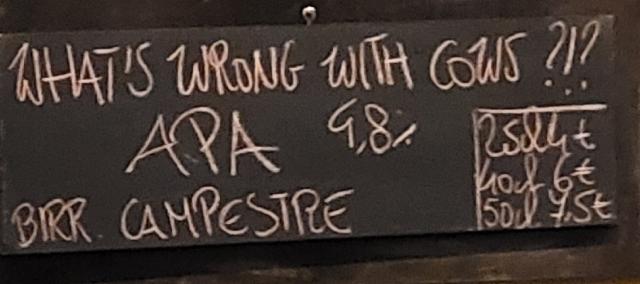 WHAT'S WRONG WITH COWS ?!?
APA 4,8%
BIRR. CAMPESTRE
25cl 4€
40cl 6€
50cl 7,5€